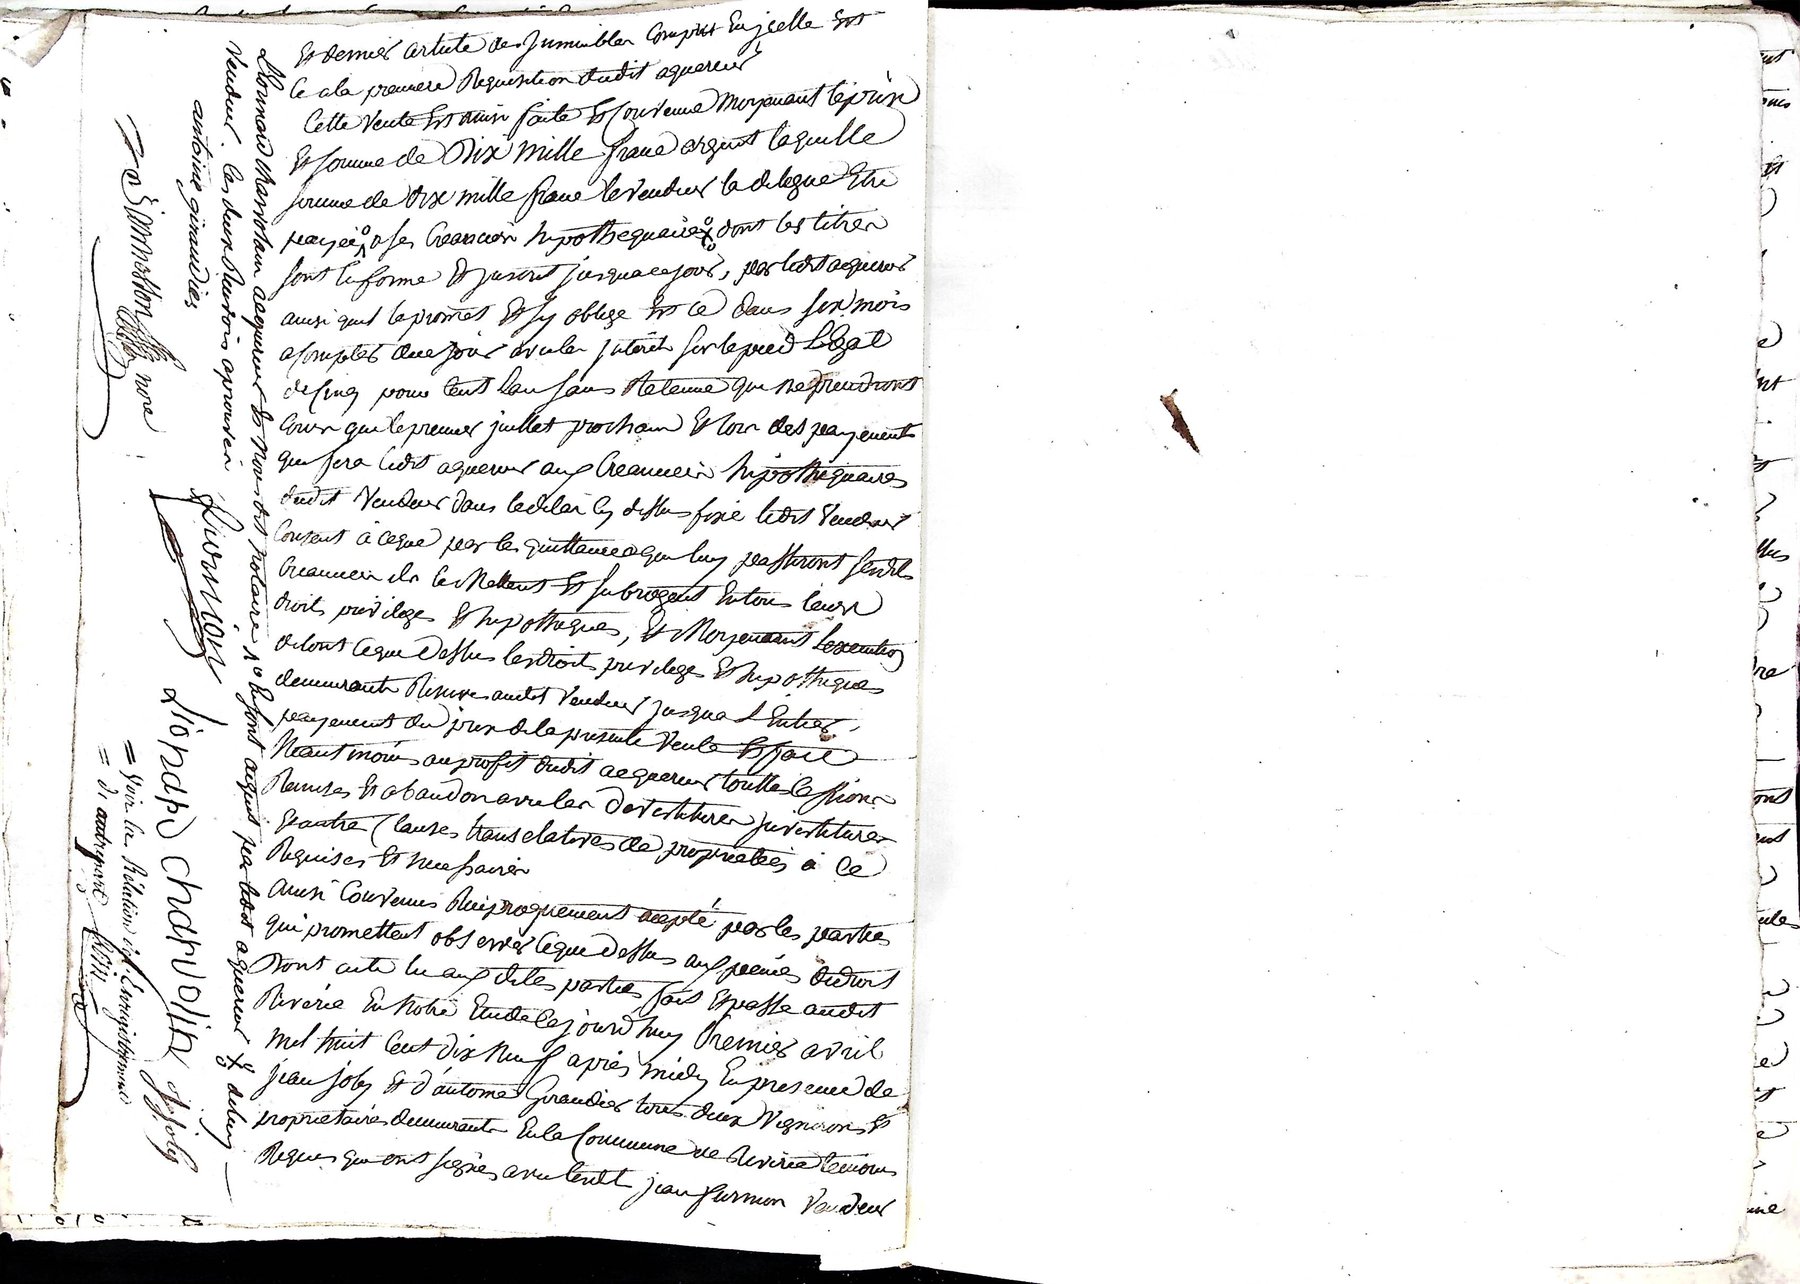 Et dernier article des immeubles compris En jcelle Et
Ce a la premiere Requisition dudit aquereur
Cette Vente Est ainsi faite Et Convenue Moyenant le prix
Et somme de Dix Mille franc argent laquelle
somme de dix mille franc le Vendeur la delegue Etre
payée a ses Creancier hipothequaire dont les titres
sont En forme Et jusqua ce jour, par ledit aquereur
ainsi quil le promet Et sy oblige Et Ce dans six mois
a Compter du jour avec les jnterêt sur le pied Legal
de Cinq pour Cent Lan sans Retenue qui ne prendront
Cours que le premier juillet prochain Et lors des payements
que fera ledit aquereur aux Creancier hipothequaires
dudit Vendeur dans le delai Cy dessus fixé ledit Vendeur
Consent à ceque par les quittances que luy passeront sesdits
Creancier ils le Mettent Et subrogent En tous leurs
droits privilege Et hipotheques, Et Moyenant Lexecution
de tout Ceque Dessus les droits privilege Et hipotheques
demeurants Reservés audit Vendeur jusqua L'Entier
payement du prix de la presente Vente Et fait
Neantmoins au profit dudit aequereur touttes Cessions
Remises Et abandon avec les devestitures jnvestitures
Et autre Clauses translatives de proprietées à Ce
Requises Et necessaires
Ainsi Convenu Reciproquement accepté par les parties
qui promettent observer Ceque Dessus aux peines dudroit
Dont acte lu aux dites parties fait Et passé audit
Riverie En Notre Etude Cejourd'huy Premier avril
Mil huit Cent dix Neuf après midy En presence de
jean joly Et d'antoine Giraudier tous deux Vignerons Et
proprietaires demeurants En la Commune de Riverie temoins
Requis qui ont signés avec ledit jean furnion Vendeur
Lionnard Charvolin aequereur Et Nous dit Notaire 1° aquis par ledit aquereur
Vendeur. les deux Renvois aprouvés
antoine giraudier
furnion
Lionard charvolin
j joly
nore
= Voir la Rélation de l'Enregistrement
= di autrepart